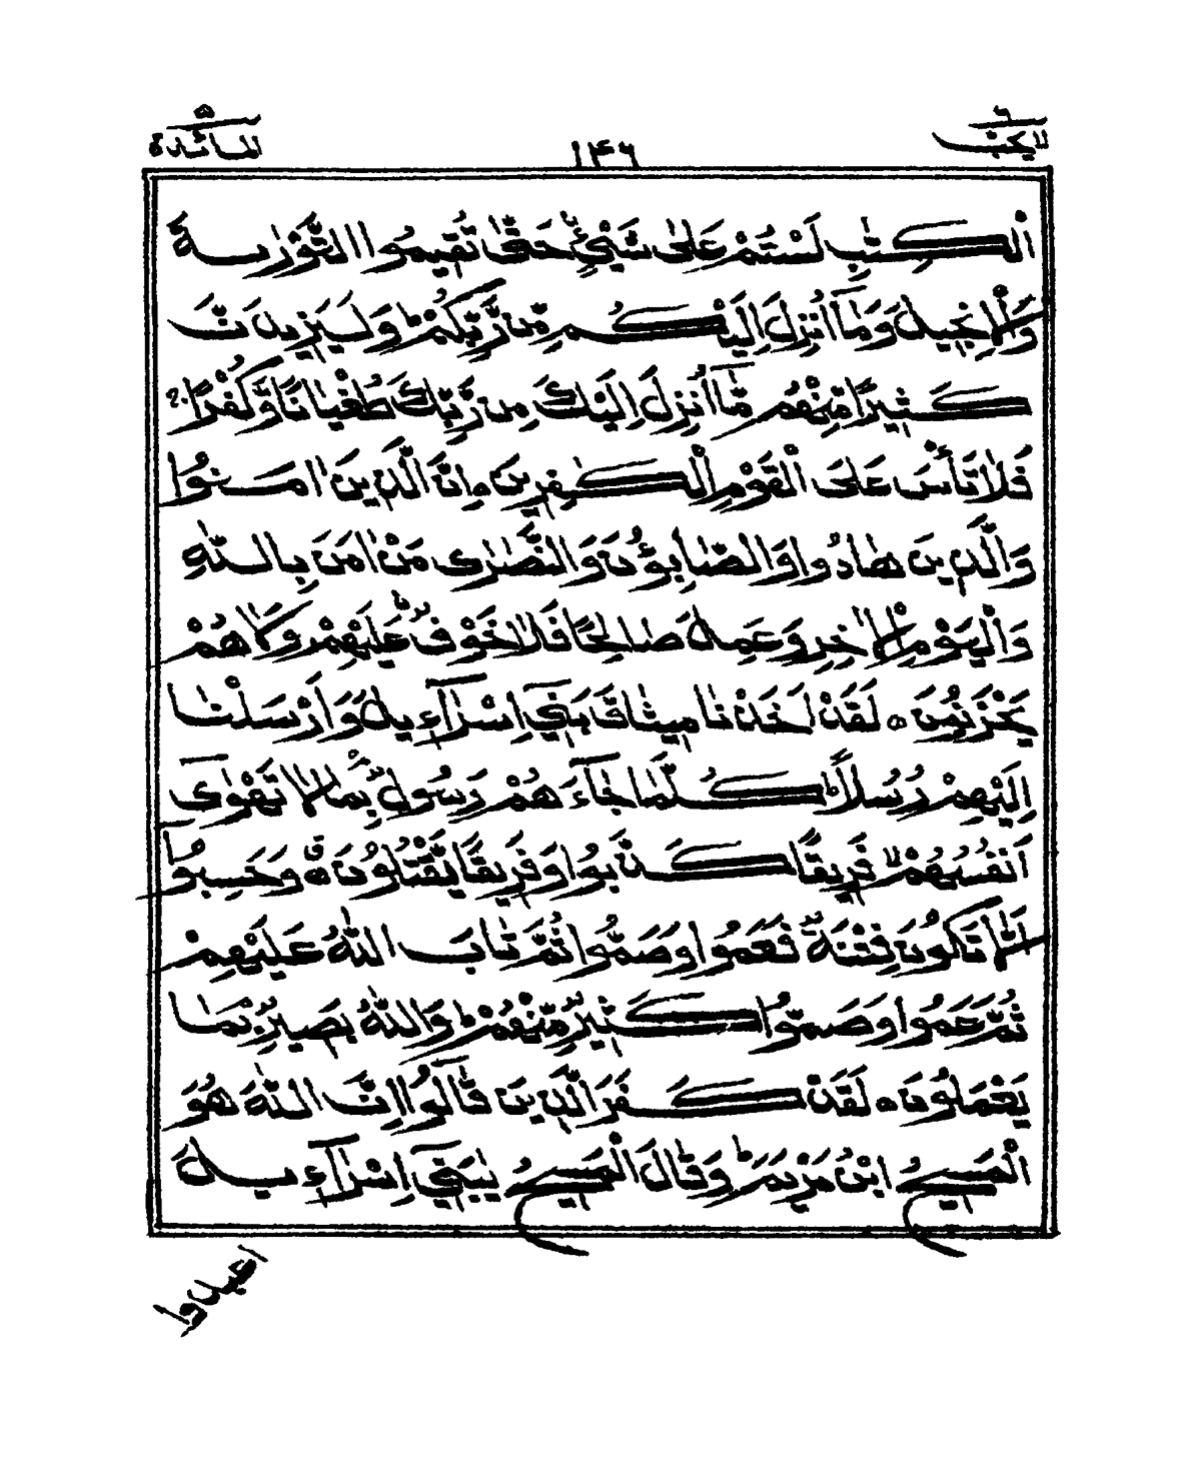 لا يحب ٦ ١٤٦ المائدة ٥
الْكِتٰبِ لَسْتُمْ عَلٰى شَيْءٍ حَتّٰى تُقِيمُوا التَّوْرٰىةَ
وَالْاِنْجِيلَ وَمَآ اُنْزِلَ اِلَيْكُمْ مِّنْ رَّبِّكُمْ ط وَلَيَزِيدَنَّ
كَثِيرًا مِّنْهُمْ مَّآ اُنْزِلَ اِلَيْكَ مِنْ رَّبِّكَ طُغْيَانًا وَّكُفْرًا ج
فَلَا تَأْسَ عَلَى الْقَوْمِ الْكٰفِرِينَ ه اِنَّ الَّذِينَ اٰمَنُوا
وَالَّذِينَ هَادُوا وَالصَّابِؤُنَ وَالنَّصٰرٰى مَنْ اٰمَنَ بِاللّٰهِ
وَالْيَوْمِ الْاٰخِرِ وَعَمِلَ صَالِحًا فَلَا خَوْفٌ عَلَيْهِمْ وَلَا هُمْ
يَحْزَنُونَ ه لَقَدْ اَخَذْنَا مِيثَاقَ بَنِيٓ اِسْرَآءِيلَ وَاَرْسَلْنَا
اِلَيْهِمْ رُسُلًا ط كُلَّمَا جَآءَهُمْ رَسُولٌ بِمَا لَا تَهْوٰىٓ
اَنْفُسُهُمْ لا فَرِيقًا كَذَّبُوا وَفَرِيقًا يَّقْتُلُونَ ه ق وَحَسِبُوٓا
اَلَّا تَكُونَ فِتْنَةٌ فَعَمُوا وَصَمُّوا ثُمَّ تَابَ اللّٰهُ عَلَيْهِمْ
ثُمَّ عَمُوا وَصَمُّوا كَثِيرٌ مِّنْهُمْ ط وَاللّٰهُ بَصِيرٌ بِمَا
يَعْمَلُونَ ه لَقَدْ كَفَرَ الَّذِينَ قَالُوٓا اِنَّ اللّٰهَ هُوَ
الْمَسِيحُ ابْنُ مَرْيَمَ ط وَقَالَ الْمَسِيحُ يٰبَنِيٓ اِسْرَآءِيلَ
اعبدوا